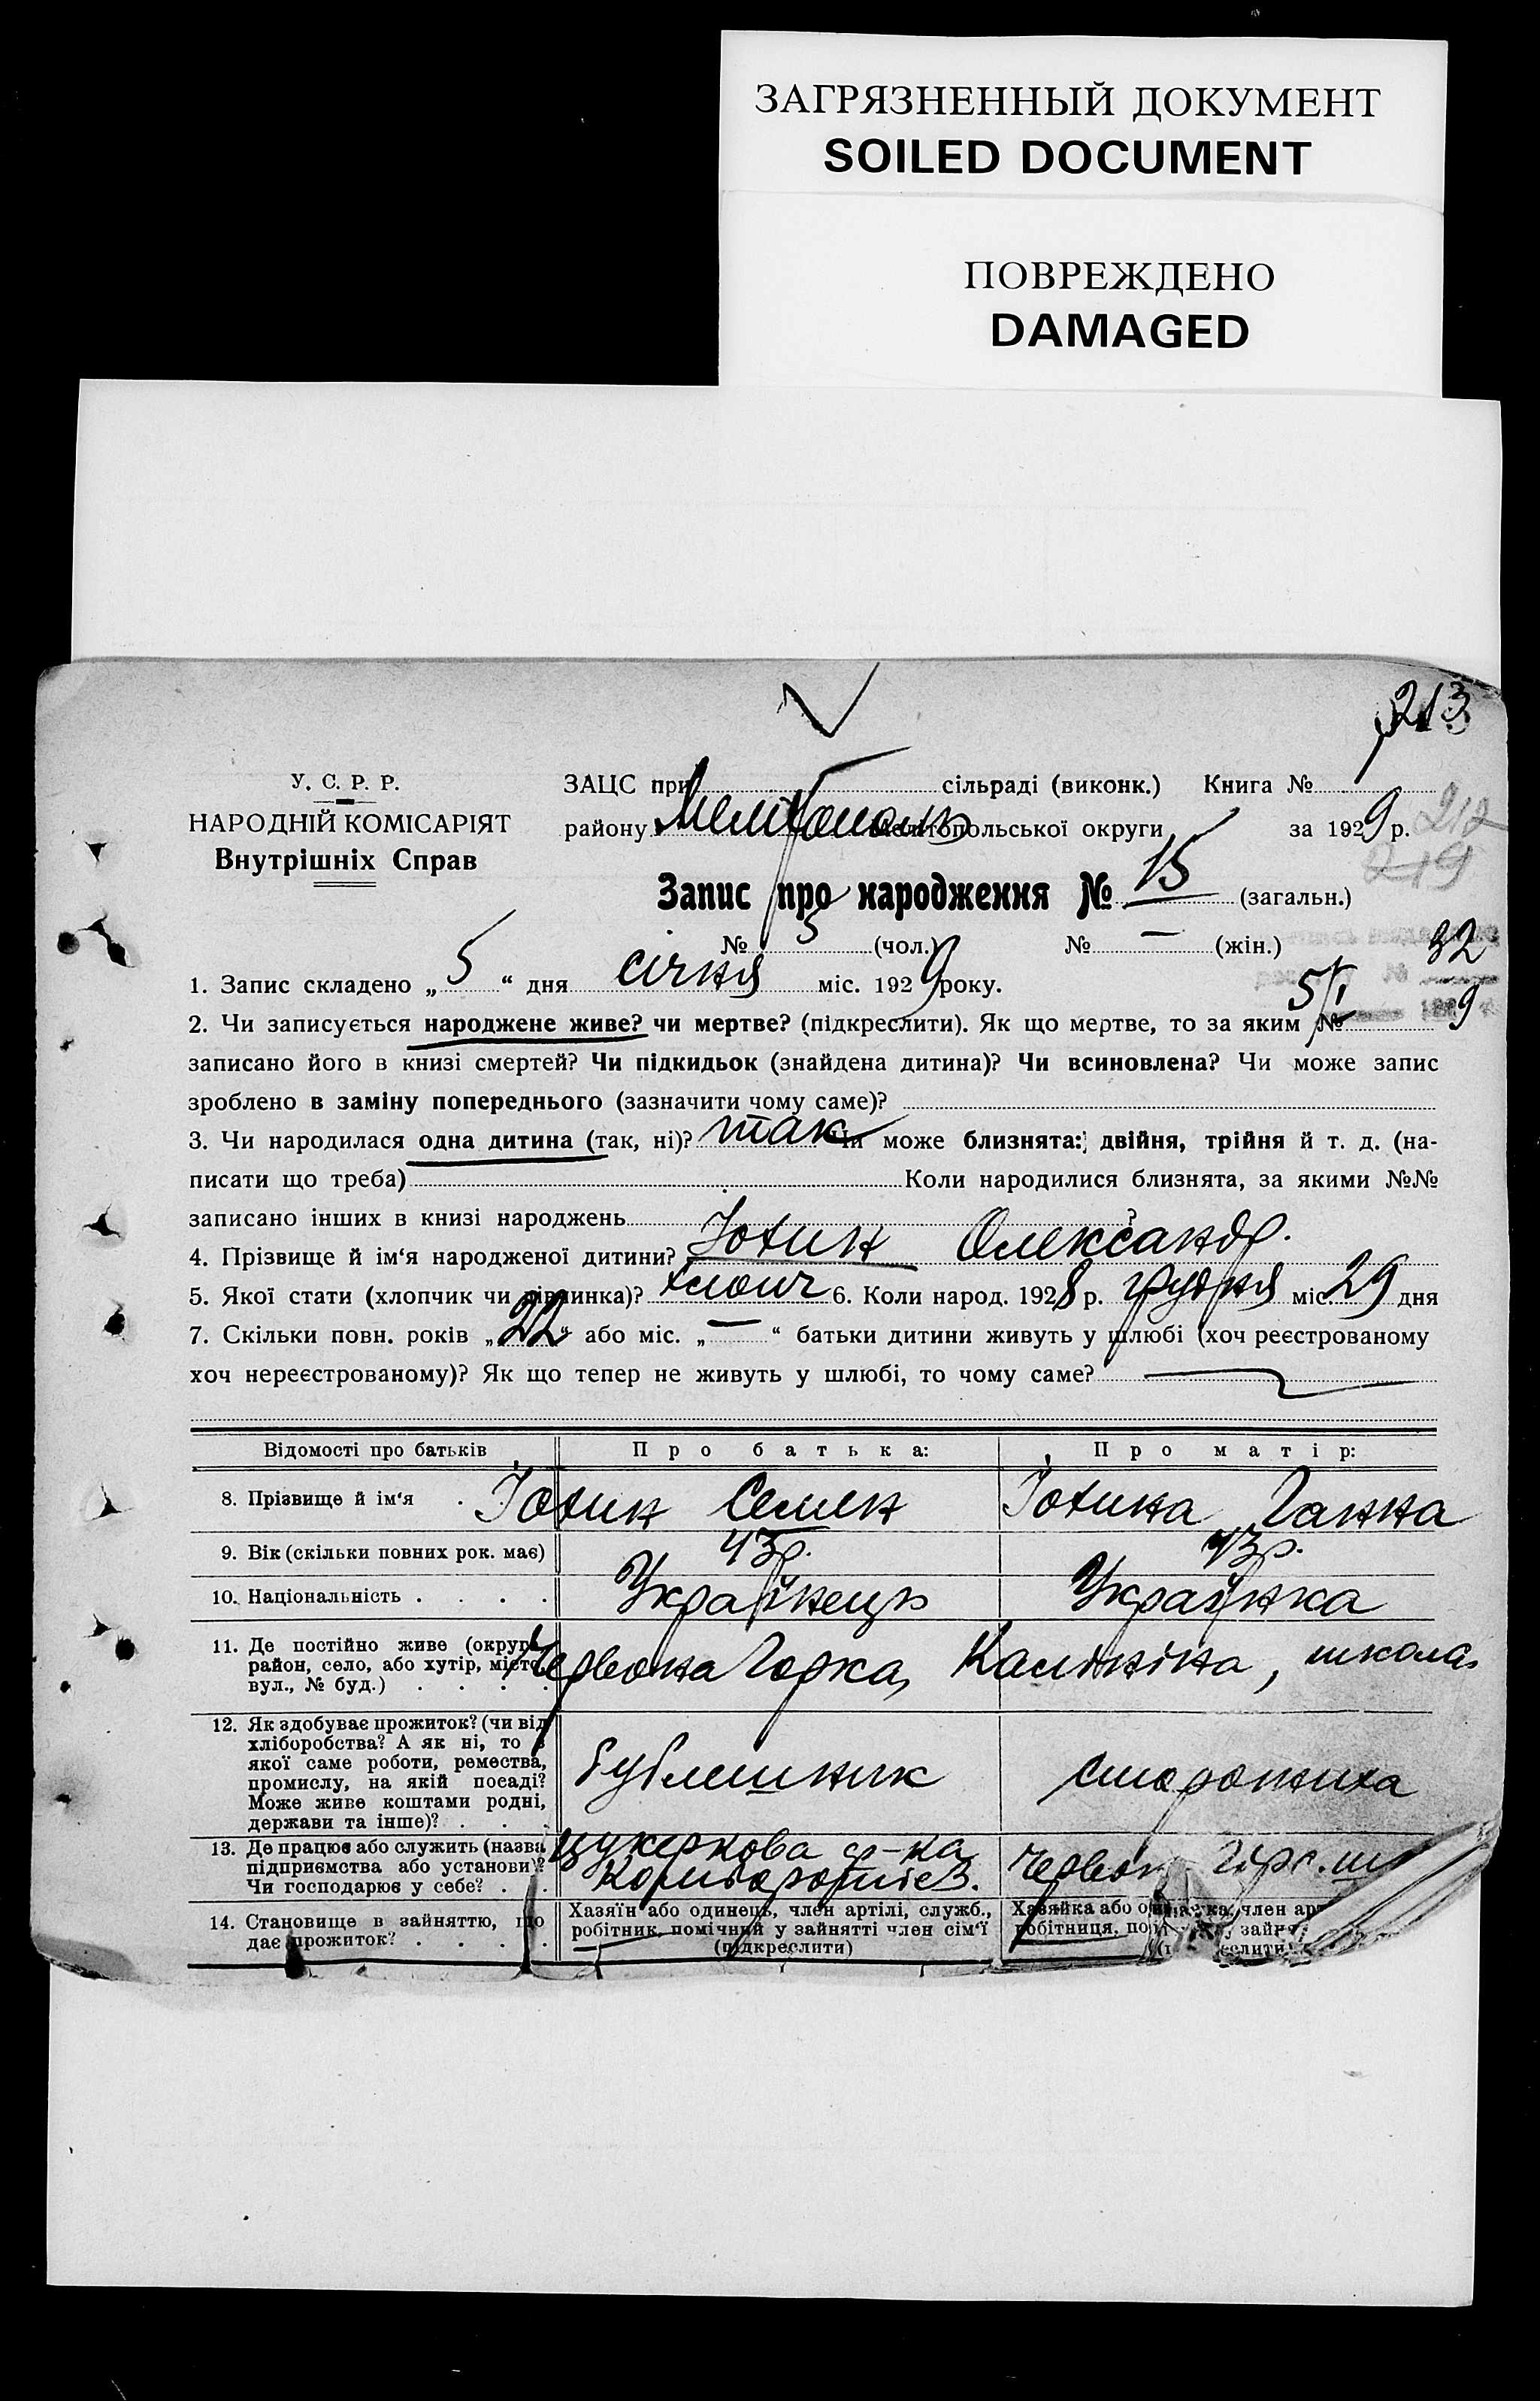 ЗАГРЯЗНЕННЫЙ ДОКУМЕНТ
SOILED DOCUMENT
ПОВРЕЖДЕНО
DAMAGED
213
У. С. Р. Р.
НАРОДНІЙ КОМІСАРІЯТ
Внутрішніх Справ
ЗАЦС при сільраді (виконк.) Книга №
району Мелітополь Мелітопольської округи за 1929 р. 212
219
Запис про народження № 15 (загальн.)
№ 5 (чол.) № — (жін.) 32
1. Запис складено „5“ дня січня міс. 1929 року.
5/I 9
2. Чи записується народжене живе? чи мертве? (підкреслити). Як що мертве, то за яким №
записано його в книзі смертей? Чи підкидьок (знайдена дитина)? Чи всиновлена? Чи може запис
зроблено в заміну попереднього (зазначити чому саме)?
3. Чи народилася одна дитина (так, ні)? так Чи може близнята: двійня, трійня й т. д. (на-
писати що треба) Коли народилися близнята, за якими №№
записано інших в книзі народжень
4. Прізвище й ім‘я народженої дитини? Йотин Олександр.
5. Якої стати (хлопчик чи дівчинка)? хлопч 6. Коли народ. 1928 р. грудня міс. 29 дня
7. Скільки повн. років „22“ або міс. „—“ батьки дитини живуть у шлюбі (хоч реєстрованому
хоч нереєстрованому)? Як що тепер не живуть у шлюбі, то чому саме?
Відомості про батьків Про батька: Про матір:
8. Прізвище й ім‘я Йотин Семен Йотина Ганна
9. Вік (скільки повних рок. має) 43 р. 43 р.
10. Національність Українець Українка
11. Де постійно живе (округа,
район, село, або хутір, місто,
вул., № буд.)
Червона Горка, Калініна, школа
12. Як здобуває прожиток? (чи від
хліборобства? А як ні, то з
якої саме роботи, ремества,
промислу, на якій посаді?
Може живе коштами родні,
держави та інше)?
бублешник сторожиха
13. Де працює або служить (назва
підприємства або установи)?
Чи господарює у себе?
цукеркова ф-ка
Червон Гірс. ш
14. Становище в зайняттю, що
дає прожиток?
Хазяїн або одинець, член артілі, служб.,
робітник, помічний у зайнятті член сім‘ї
(підкреслити)
Хазяйка або одиначка, член арт
робітниця, по у зайн
еслити)